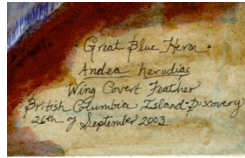 Great Blue Heron
Ardea herodias
Wing Covert Feather
British Columbia Island Discovery
26th of September 2003